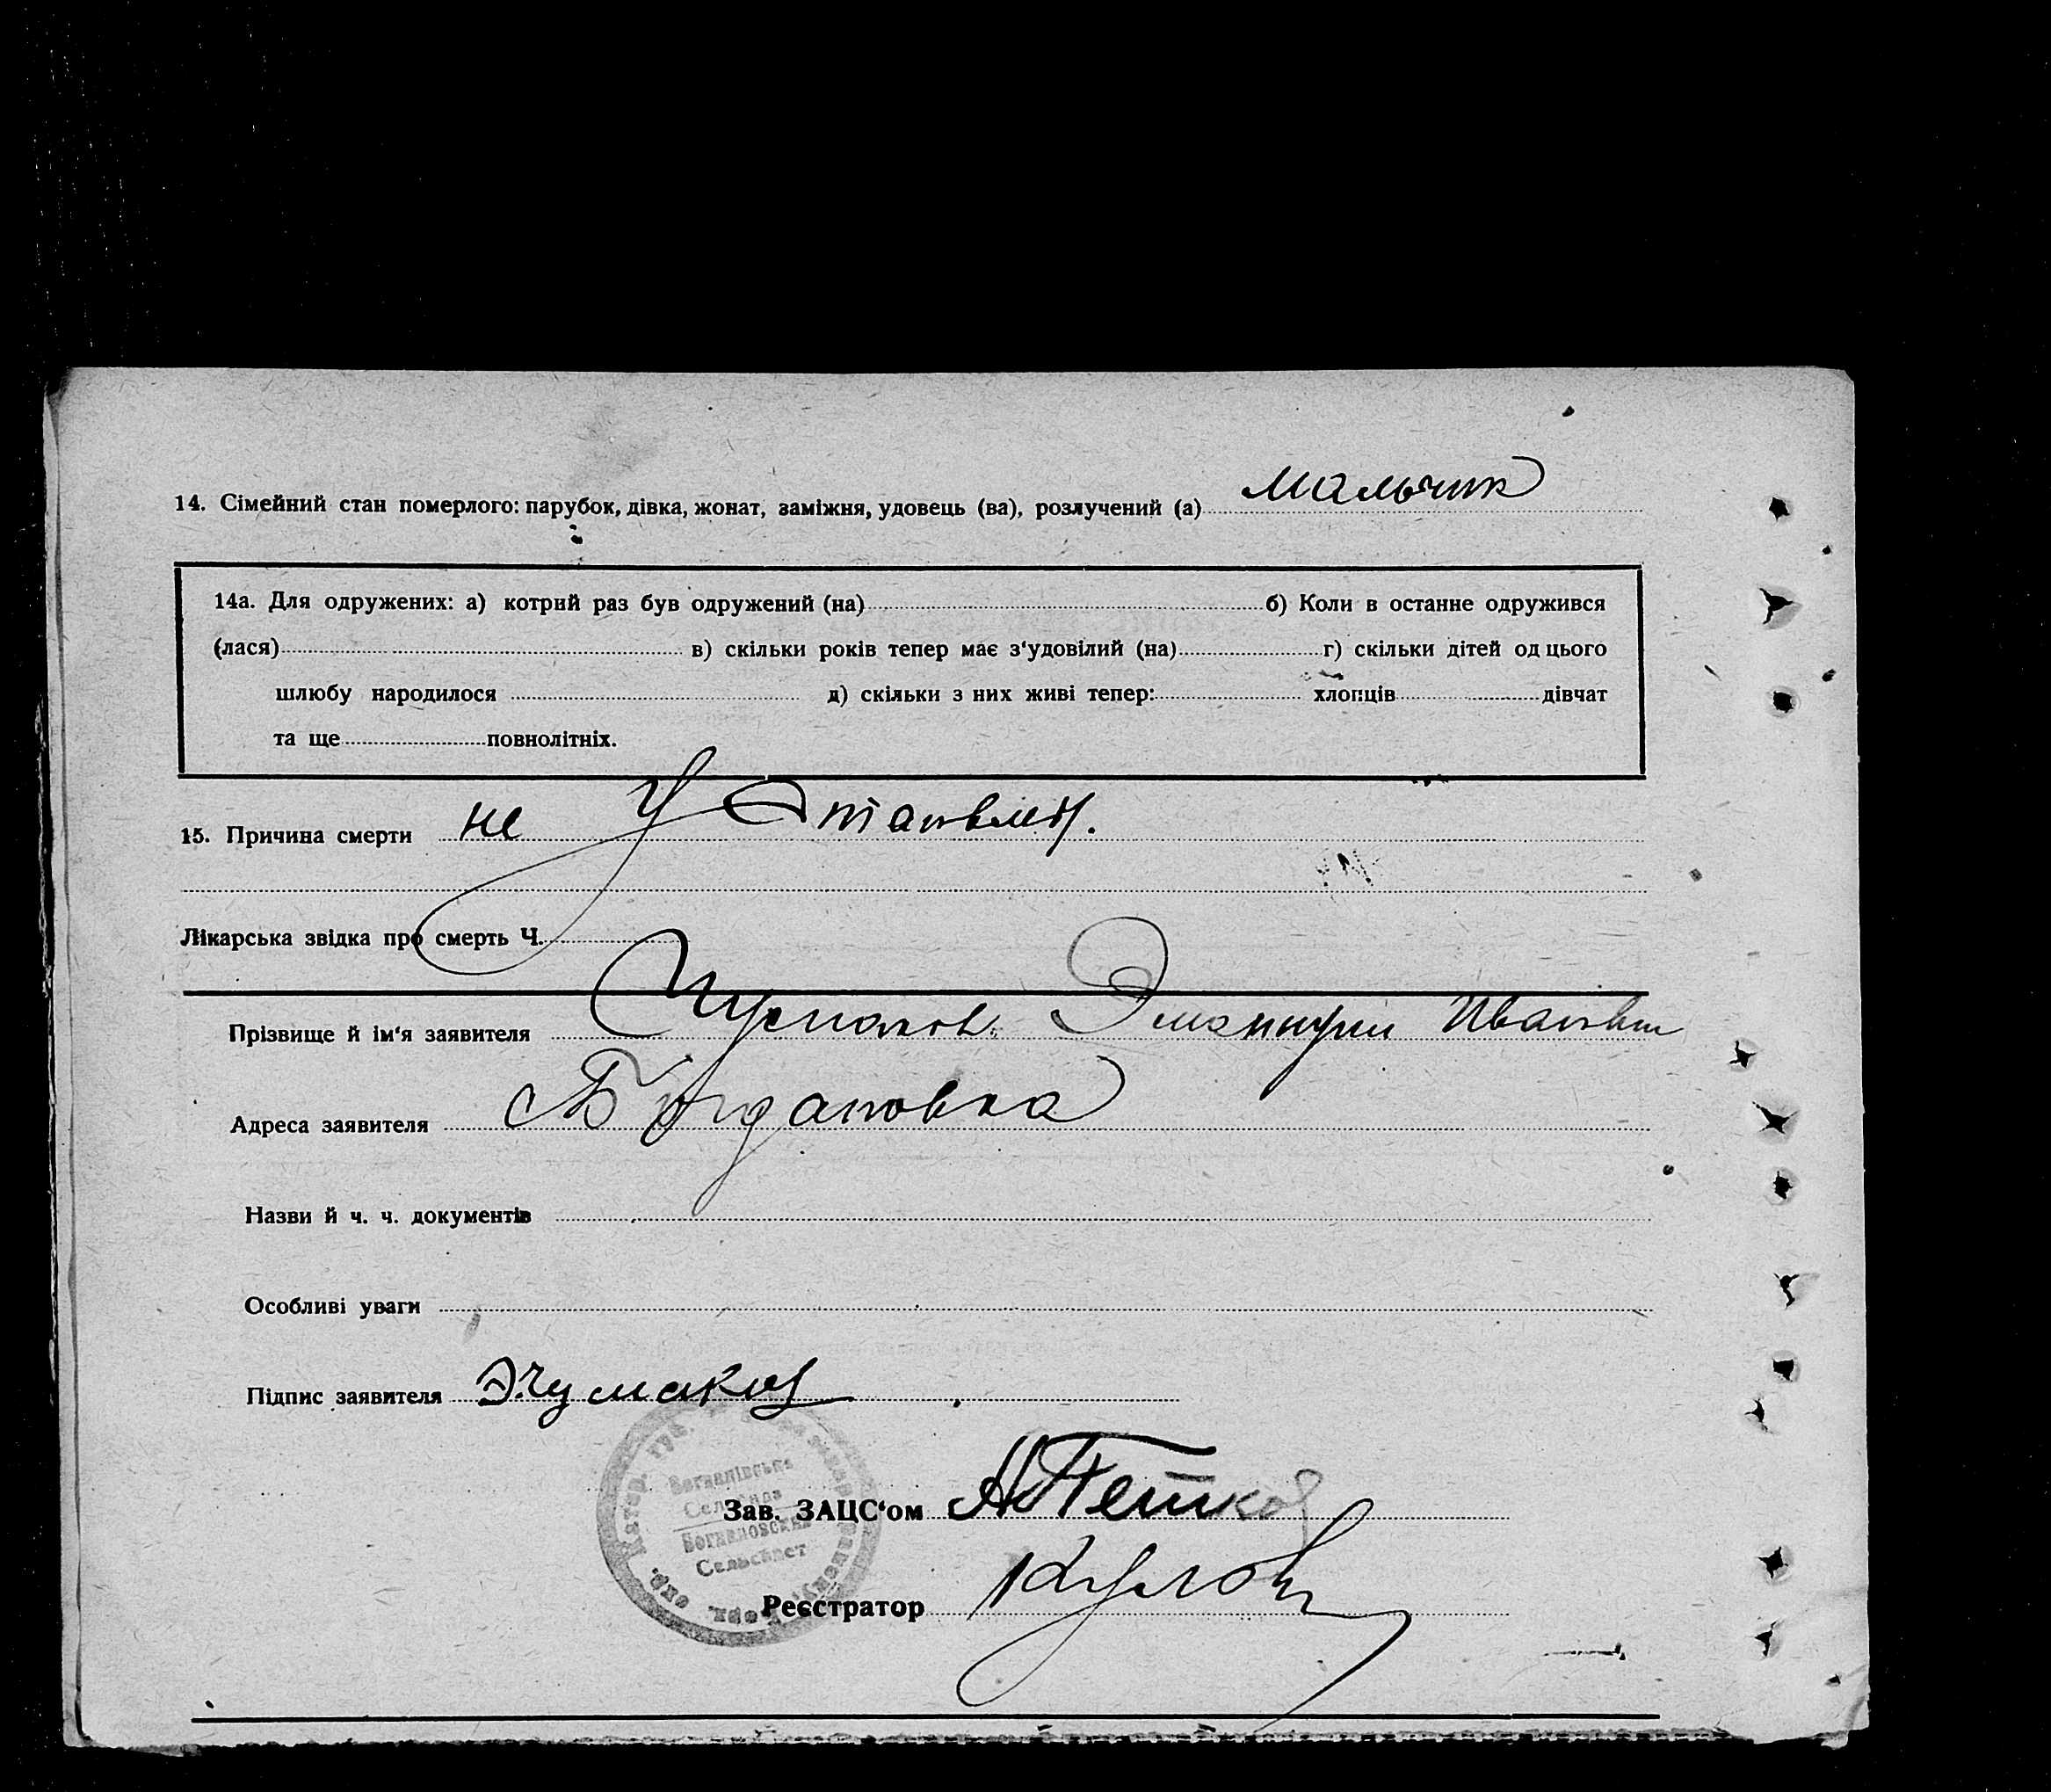 14. Сімейний стан померлого: парубок, дівка, жонат, заміжня, удовець (ва), розлучений (а) мальчик
14а. Для одружених: а) котрий раз був одружений (на) б) Коли в останне одружився
(лася) в) скільки років тепер має з‘удовілий (на) г) скільки дітей од цього
шлюбу народилося д) скільки з них живі тепер: хлопців дівчат
та ще повнолітніх.
15. Причина смерти не Установлен.
Лікарська звідка про смерть Ч.
Прізвище й ім‘я заявителя Чумаков Эмануил Иванович
Адреса заявителя Богдановка
Назви й ч. ч. документів
Особливі уваги
Підпис заявителя Э.Чумаков
Сельсовет
Зав. ЗАЦС‘ом Петков
Реєстратор